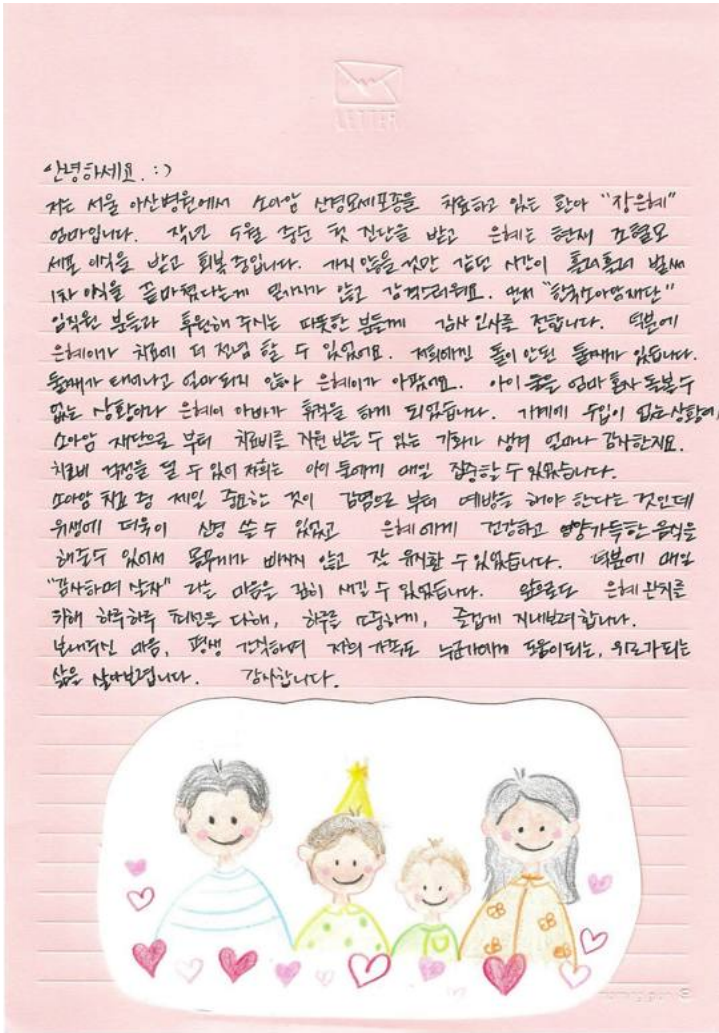 LETTER
안녕하세요. :)
저는 서울 아산병원에서 소아암 신경모세포종을 치료하고 있는 환아 "장은혜"
엄마입니다. 작년 5월 중순 첫 진단을 받고 은혜는 현재 조혈모
세포 이식을 받고 회복 중입니다. 가지 않을 것만 같던 시간이 흘러흘러 벌써
1차 이식을 끝마쳤다는게 믿기지가 않고 감격스러워요. 먼저 "한국소아암재단"
임직원 분들과 후원해 주시는 따뜻한 분들께 감사 인사를 전합니다. 덕분에
은혜이가 치료에 더 전념 할 수 있었어요. 저희에겐 돌이 안된 둘째가 있습니다.
둘째가 태어나고 얼마되지 않아 은혜이가 아팠어요. 아이 둘을 엄마 혼자 돌볼 수
없는 상황이라 은혜이 아빠가 휴직을 하게 되었습니다. 가계에 수입이 없는 상황에,
소아암 재단으로 부터 치료비를 지원 받을 수 있는 기회가 생겨 얼마나 감사한지요.
치료비 걱정을 덜 수 있어 저희는 아이 둘에게 매일 집중할 수 있었습니다.
소아암 치료 중 제일 중요한 것이 감염으로 부터 예방을 해야 한다는 것인데
위생에 더욱이 신경 쓸 수 있었고 은혜에게 건강하고 영양가득한 음식을
해줄수 있어서 몸무게가 빠지지 않고 잘 유지할 수 있었습니다. 덕분에 매일
"감사하며 살자" 라는 마음을 깊히 새길 수 있었습니다. 앞으로도 은혜 완치를
위해 하루하루 최선을 다해, 하루를 소중하게, 즐겁게 지내보려합니다.
보내주신 마음, 평생 간직하며 저희 가족도 누군가에게 도움이되는, 위로가되는
삶을 살아보렵니다. 감사합니다.